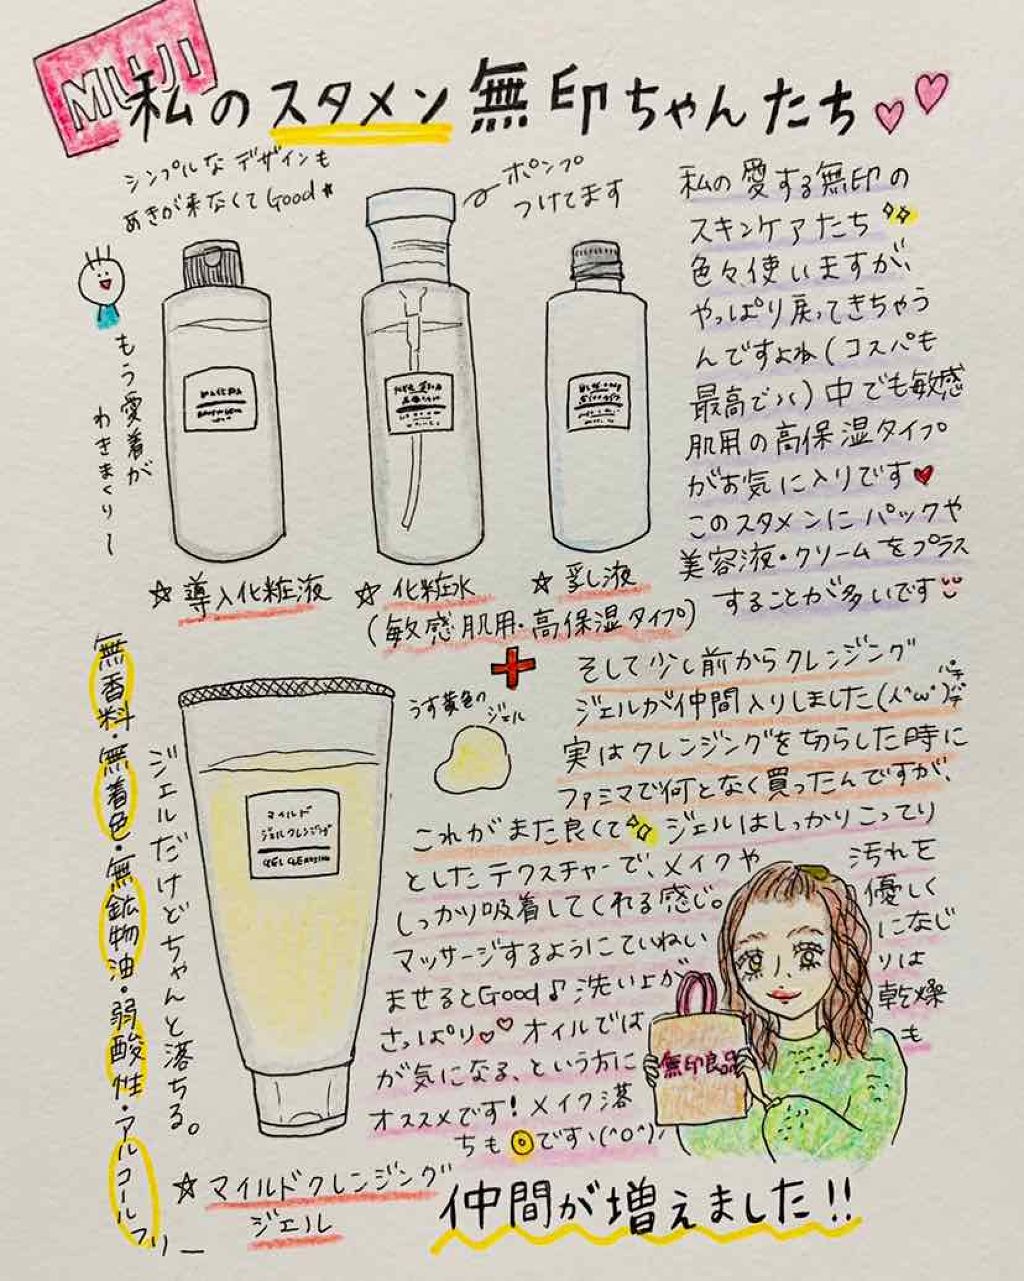 MUJI
私のスタメン無印ちゃんたち
シンプルなデザインも
あきが来なくてGood
ポンプ
つけてます
もう愛着が
わきまくり〜
私の愛する無印の
スキンケアたち
色々使いますが、
やっぱり戻ってきちゃう
んですよね(コスパも
最高で
)中でも敏感
肌用の高保湿タイプ
がお気に入りです
このスタメンにパックや
美容液・クリームをプラス
することが多いです
☆導入化粧液
☆化粧水
☆乳液
(敏感肌用・高保湿タイプ)
+
無香料・無着色・無鉱物油・弱酸性・アルコールフリー
ジェルだけどちゃんと落ちる。
マイルド
ジェルクレンジング
GEL CLEANSING
☆マイルドクレンジング
ジェル
うす黄色の
ジェル
そして少し前からクレンジング
ジェルが仲間入りしました(人^ω^)パチパチ
実はクレンジングを切らした時に
ファミマで何となく買ったんですが、
これがまた良くて ジェルはしっかりこってり
としたテクスチャーで、メイクや 汚れを
しっかり吸着してくれる感じ。 優しく
マッサージするようにていねい になじ
ませるとGood♪洗い上が りは
さっぱり オイルでは 乾燥も
が気になる、という方に
オススメです!メイク落
ちも◎ですヽ(^o^)丿
無印良品
仲間が増えました!!